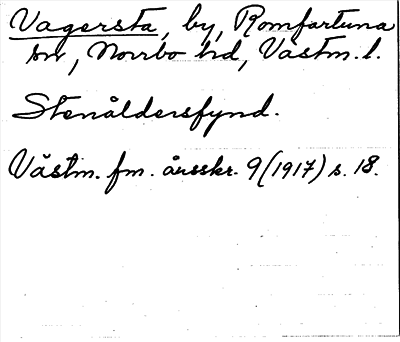 Vagersta, by, Romfartuna
sn, Norrbo hd, Västm. l.
Stenåldersfynd.
Västm. fm. årsskr. 9 (1917) s. 18.